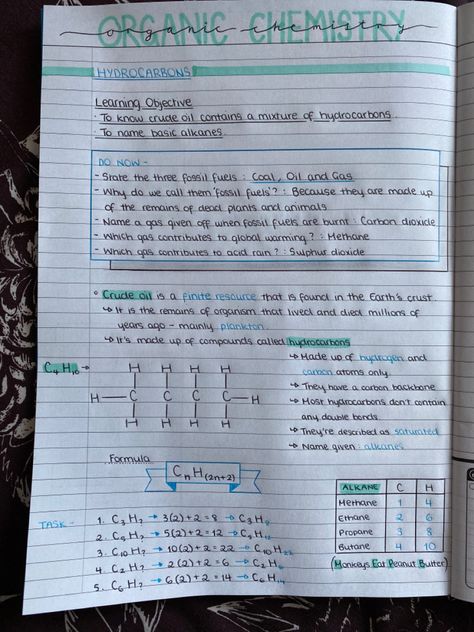 ORGANIC CHEMISTRY
organic chemistry
HYDROCARBONS
Learning Objective
· To know crude oil contains a mixture of hydrocarbons.
· To name basic alkanes.
DO NOW -
- State the three fossil fuels : Coal, Oil and Gas
- Why do we call them 'fossil fuels'? : Because they are made up
of the remains of dead plants and animals
- Name a gas given off when fossil fuels are burnt : Carbon dioxide
- Which gas contributes to global warming? : Methane
- Which gas contributes to acid rain? : Sulphur dioxide
° Crude oil is a finite resource that is found in the Earth's crust.
↳ It is the remains of organism that lived and died millions of
years ago - mainly plankton.
↳ It's made up of compounds called hydrocarbons
↳ Made up of hydrogen and
carbon atoms only.
↳ They have a carbon backbone
↳ Most hydrocarbons don't contain
any double bonds
↳ They're described as saturated
↳ Name given : alkanes
C₄H₁₀ →
H H H H
H C C C C H
H H H H
Formula
CₙH(2n+2)
TASK -
1. C₃H? → 3(2)+2 = 8 → C₃H₈
2. C₅H? → 5(2)+2 = 12 → C₅H₁₂
3. C₁₀H? → 10(2)+2 = 22 → C₁₀H₂₂
4. C₂H? → 2(2)+2 = 6 → C₂H₆
5. C₆H? → 6(2)+2 = 14 → C₆H₁₄
ALKANE C H
Methane 1 4
Ethane 2 6
Propane 3 8
Butane 4 10
(Monkeys Eat Peanut Butter)